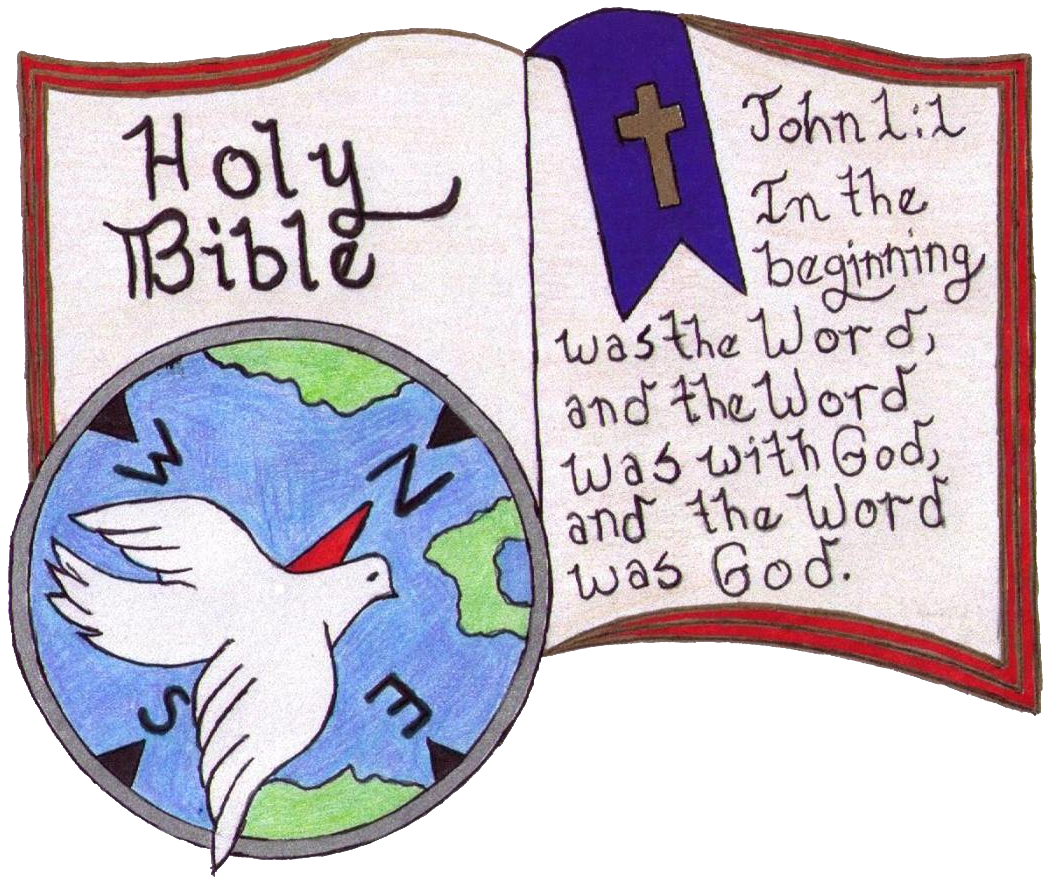 Holy
Bible
John 1:1
In the
beginning
was the Word,
and the Word
was with God,
and the Word
was God.
W
N
S
E